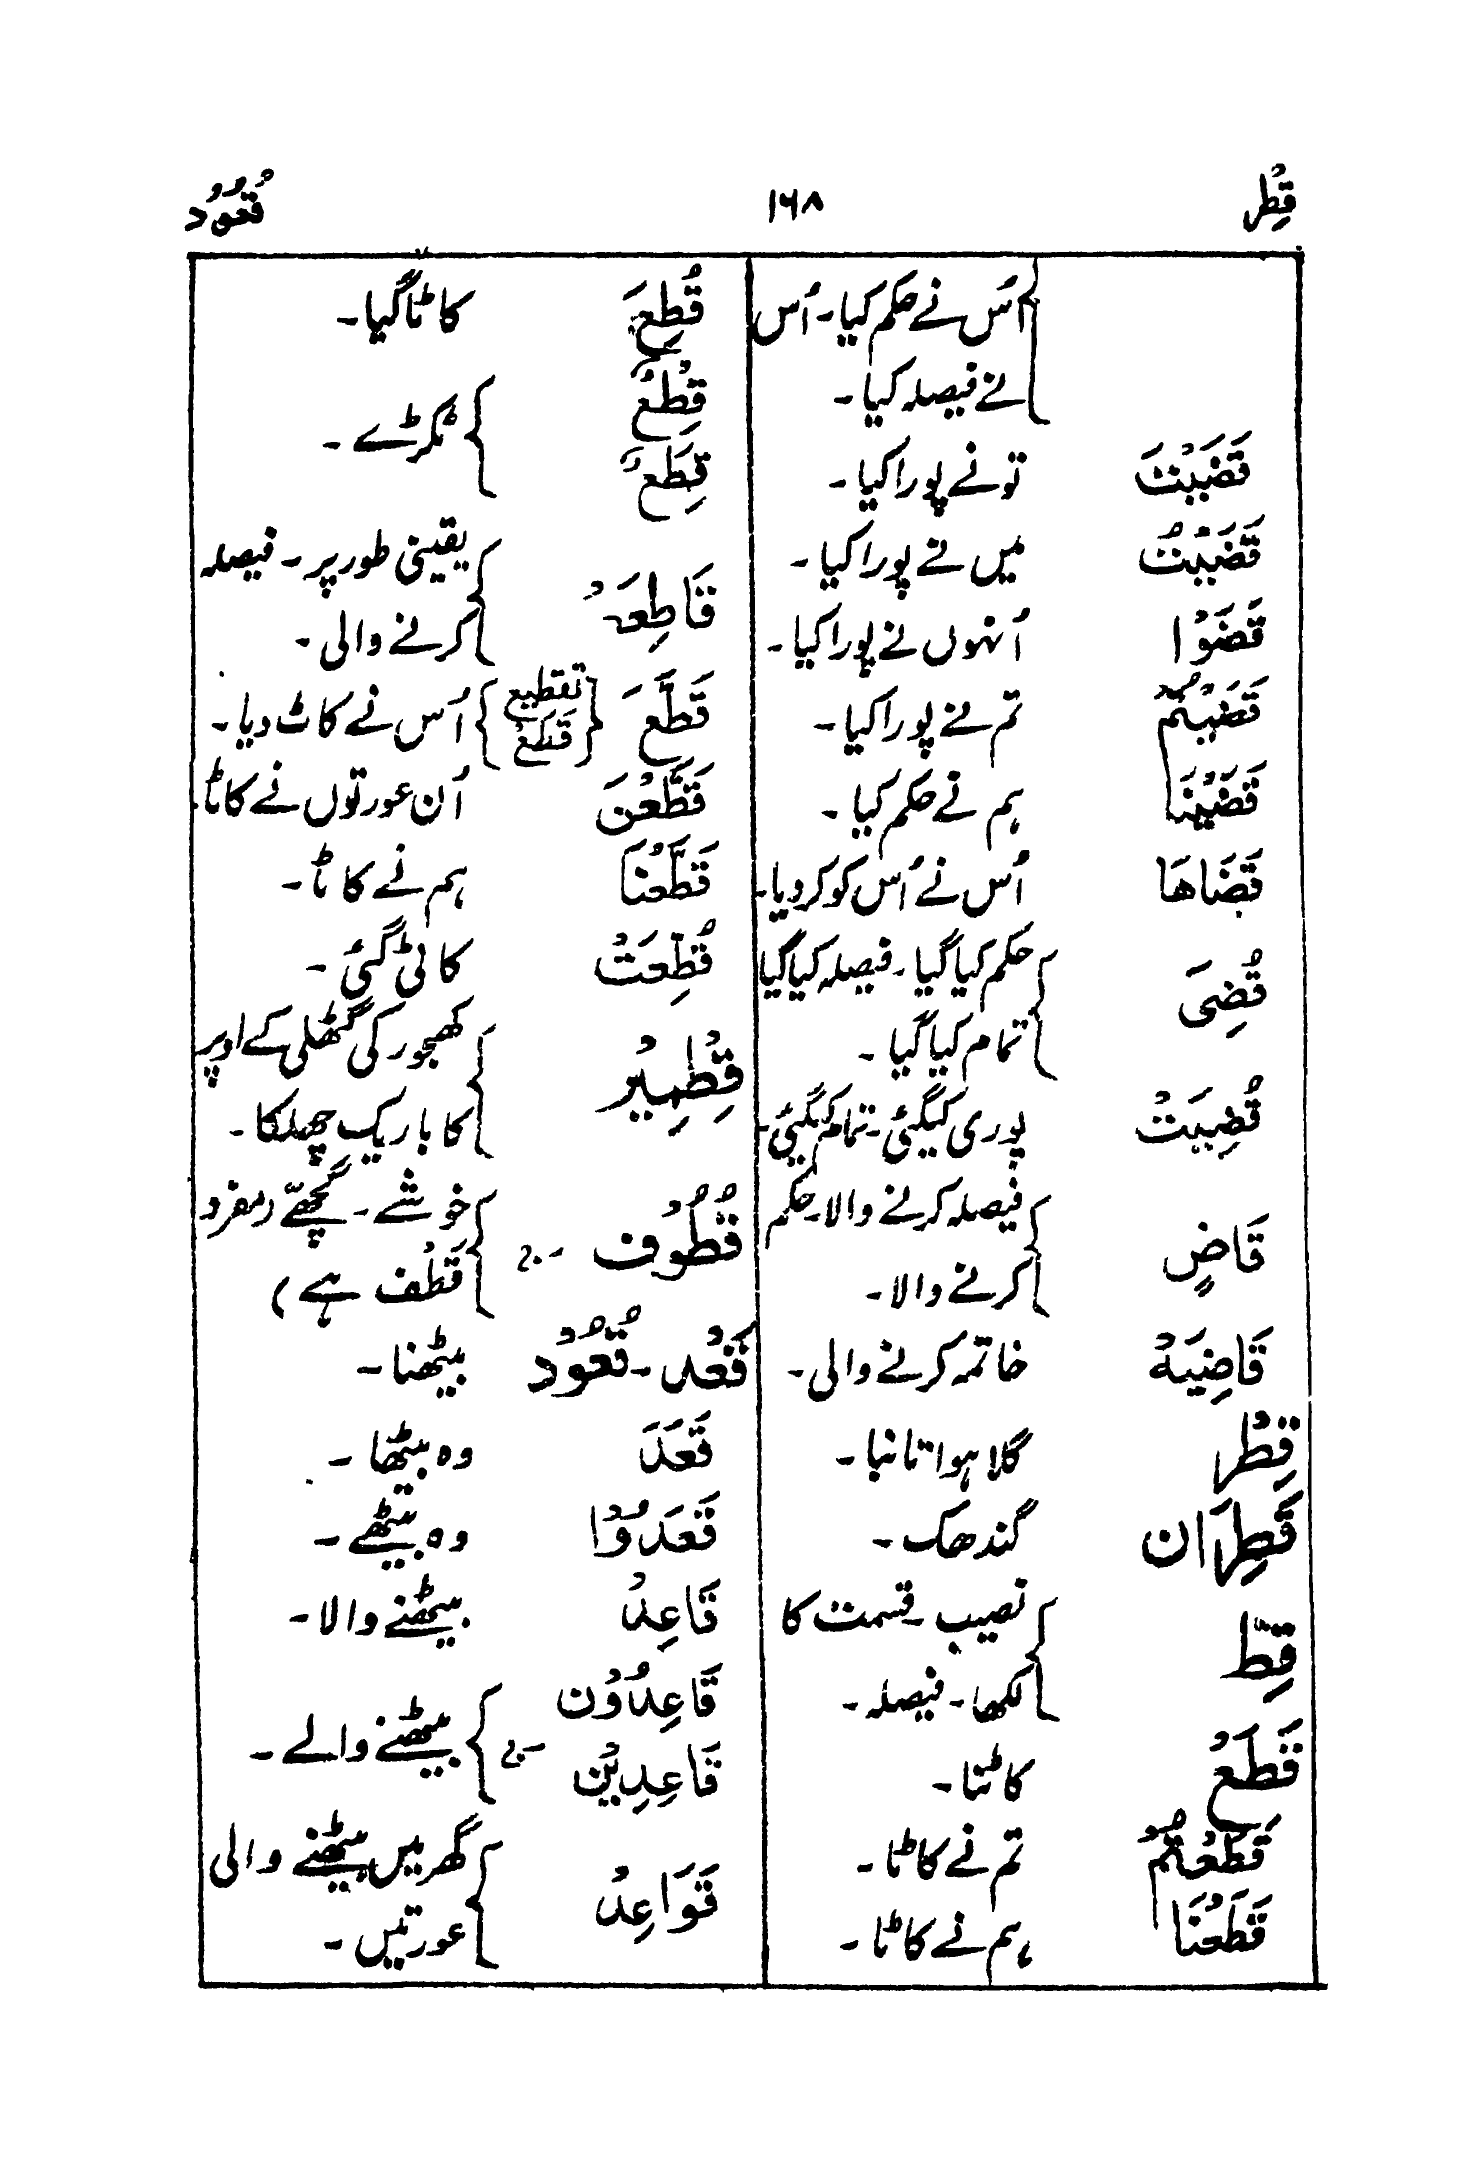 قِطْر ۱۶۸ قُعُوْد
اُس نے حکم کیا۔ اُس
نے فیصلہ کیا۔
قَضَيْتَ تو نے پورا کیا۔
قَضَيْتُ میں نے پورا کیا۔
قَضَوْا اُنہوں نے پورا کیا۔
قَضَيْتُمْ تم نے پورا کیا۔
قَضَيْنَا ہم نے حکم کیا۔
قَضَاهَا اُس نے اُس کو کر دیا۔
قُضِیَ حکم کیا گیا۔ فیصلہ کیا گیا
تمام کیا گیا۔
قُضِيَتْ پوری کی گئی۔ تمام کی گئی۔
قَاضٍ فیصلہ کرنے والا۔ حکم
کرنے والا۔
قَاضِيَةُ خاتمہ کرنے والی۔
قِطْر گلا ہوا تانبا۔
قَطِرَان گندھک۔
قِطّ نصیب۔ قسمت کا
لکھا۔ فیصلہ۔
قَطَعْ کاٹنا۔
قَطَعْتُمْ تم نے کاٹا۔
قَطَعْنَا ہم نے کاٹا۔
قُطِعَ کاٹا گیا۔
قِطْعٌ
قِطَعٌ ٹکڑے۔
قَاطِعَةُ یقینی طور پر۔ فیصلہ
کرنے والی۔
قَطَّعَ تقطیع قَطْعٌ اُس نے کاٹ دیا۔
قَطَّعْنَ اُن عورتوں نے کاٹا
قَطَّعْنَا ہم نے کاٹا۔
قُطِّعَتْ کاٹی گئی۔
قِطْمِيْر کھجور کی گٹھلی کے اوپر
کا باریک چھلکا۔
قُطُوْف ج خوشے۔ گچھے (مفرد
قَطْف ہے)
قَعْد۔ قُعُوْد بیٹھنا۔
قَعَدَ وہ بیٹھا۔
قَعَدُوْا وہ بیٹھے۔
قَاعِدُ بیٹھنے والا۔
قَاعِدُوْن
قَاعِدِيْن ج بیٹھنے والے۔
قَوَاعِدُ گھر میں بیٹھنے والی
عورتیں۔